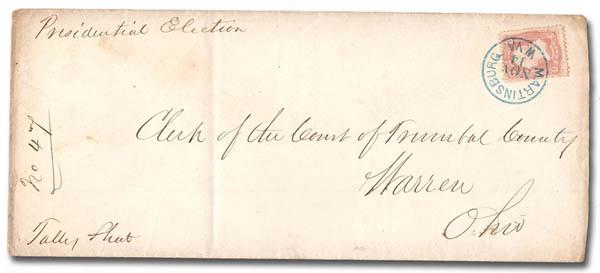 Presidential Election
MARTINSBURG W.VA
NOV
No 47
Clerk of the Court of Trumbal County
Warren
Ohio
Tally Sheet